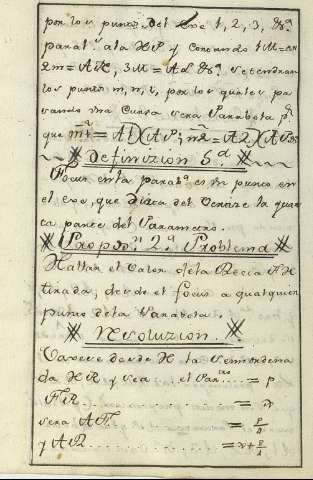 por los puntos del exe 1, 2, 3, &ª
paral.ˢ a la HP y Cortando 1M = an
2m = AK, 3M = Ad &ª se tendran
los puntos m, n, i, por los quales pa
sando una Curva sera Parabola p.ˢ
que
Definizion 5ª
Focus en la parabª es un punto en
el exe, que dista del Vertice la quar
ta parte del Parametro.
Propoⁿ 2ª Problema
Hallar el Valor de la Recta FH
tirada, desde el focus a qualquier
punto de la Parabola.
Resoluzion.
Vaxese desde H la semiordena
da HR y sea el Parᵗʳᵒ = p
FR = x
sera AF = p/4
y AR = x + p/4